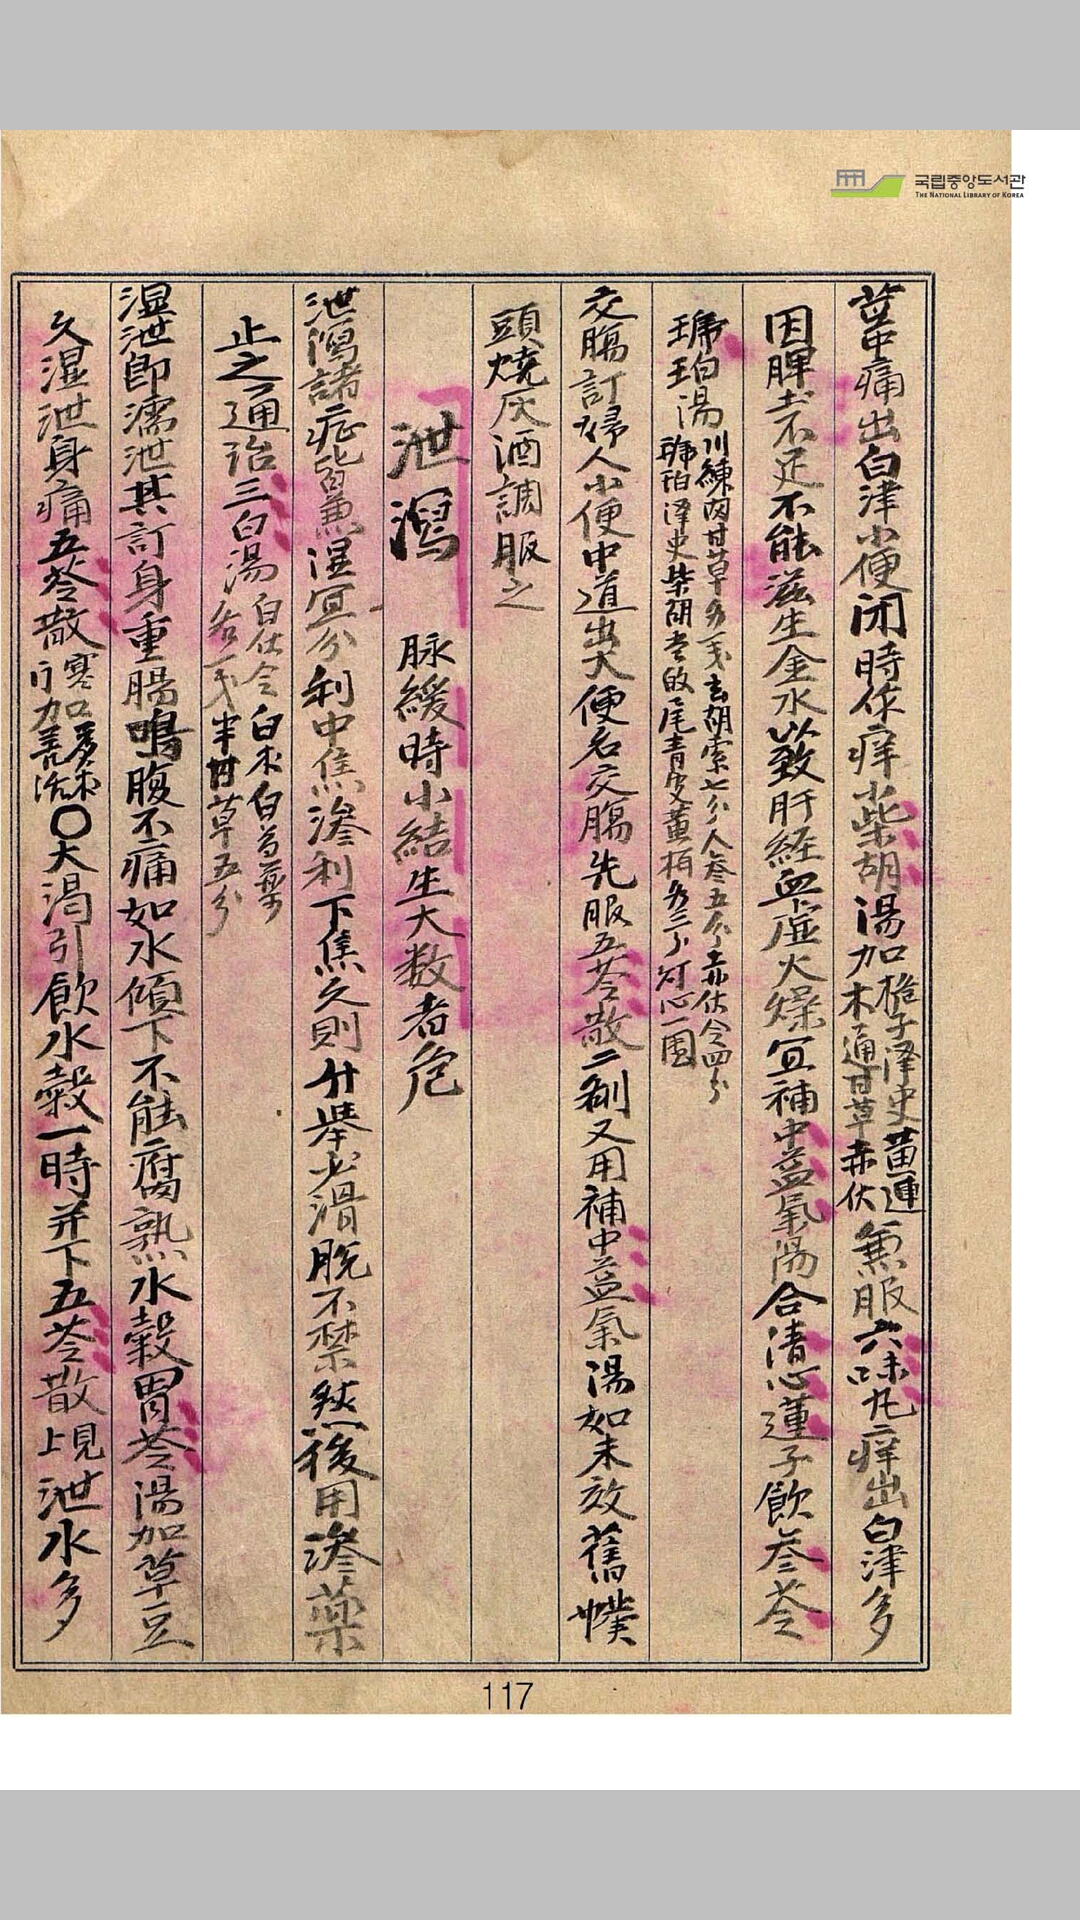 국립중앙도서관
THE NATIONAL LIBRARY OF KOREA
莖中痛出白津小便閉時作痒小柴胡湯加梔子澤史黃連木通甘草赤伏兼服六味丸痒出白津多
因脾不足不能滋生金水以致肝経血虛火燥宜補中益氣湯合清心蓮子飮参苓
琥珀湯川練肉甘草各戔玄胡索七分人参五分赤伏令四分琥珀澤史柴胡當的尾青皮黃栢各三分灯心一團
交腸訂婦人小便中道出大便名交腸先服五苓散二劑又用補中益氣湯如未效舊幞
頭燒灰酒調服之
泄瀉 脉緩時小結生大数者危
泄瀉諸症皆兼湿宜分利中焦滲利下焦久則升挙必滑脫不禁然後用澁藥
止之通治三白湯白伏令白朮白芍藥各戔半甘草五分
湿泄卽濡泄其訂身重腸鳴腹不痛如水傾下不能腐熟水穀胃苓湯加草豆
久湿泄身痛五苓散寒加羌活〇大渴引飮水穀一時并下五苓散上見泄水多
117